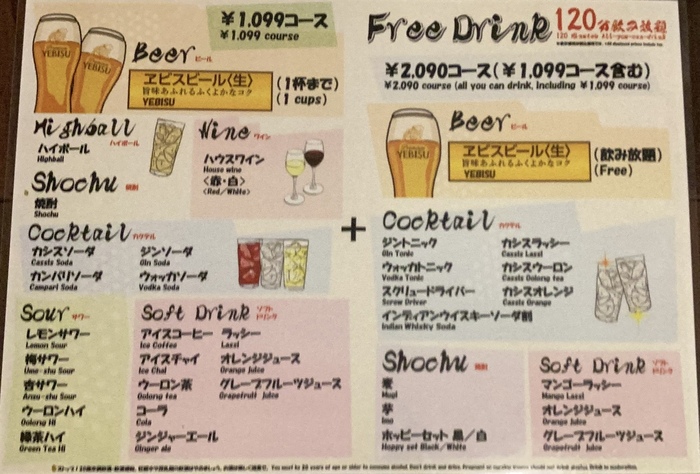 ¥1.099コース
¥1.099 course
Beer ビール
YEBISU
ヱビスビール〈生〉
旨味あふれるふくよかなコク
YEBISU
(1杯まで)
(1 cups)
Highball ハイボール
ハイボール
Highball
Wine ワイン
ハウスワイン
House wine
〈赤・白〉
〈Red/White〉
Shochu 焼酎
焼酎
Shochu
Cocktail カクテル
カシスソーダ
Cassis Soda
カンパリソーダ
Campari Soda
ジンソーダ
Gin Soda
ウォッカソーダ
Vodka Soda
Sour サワー
レモンサワー
Lemon Sour
梅サワー
Ume-shu Sour
杏サワー
Anzu-shu Sour
ウーロンハイ
Oolong Hi
緑茶ハイ
Green Tea Hi
Soft Drink ソフトドリンク
アイスコーヒー
Ice Coffee
アイスチャイ
Ice Chai
ウーロン茶
Oolong tea
コーラ
Cola
ジンジャーエール
Ginger ale
ラッシー
Lassi
オレンジジュース
Orange Juice
グレープフルーツジュース
Grapefruit Juice
+
Free Drink 120分飲み放題
120 Minutes All-you-can-drink
¥2.090コース(¥1.099コース含む)
¥2.090 course (all you can drink, including ¥1.099 course)
Beer ビール
YEBISU
ヱビスビール〈生〉
旨味あふれるふくよかなコク
YEBISU
(飲み放題)
(Free)
Cocktail カクテル
ジントニック
Gin Tonic
ウォッカトニック
Vodka Tonic
スクリュードライバー
Screw Driver
インディアンウイスキーソーダ割
Indian Whisky Soda
カシスラッシー
Cassis Lassi
カシスウーロン
Cassis Oolong tea
カシスオレンジ
Cassis Orange
Shochu 焼酎
麦
Mugi
芋
Imo
ホッピーセット 黒/白
Hoppy set Black/White
Soft Drink ソフトドリンク
マンゴーラッシー
Mango Lassi
オレンジジュース
Orange Juice
グレープフルーツジュース
Grapefruit Juice